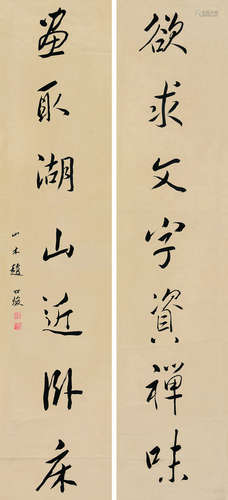 欲求文字資禪味
畫取湖山近卧床
山木趙